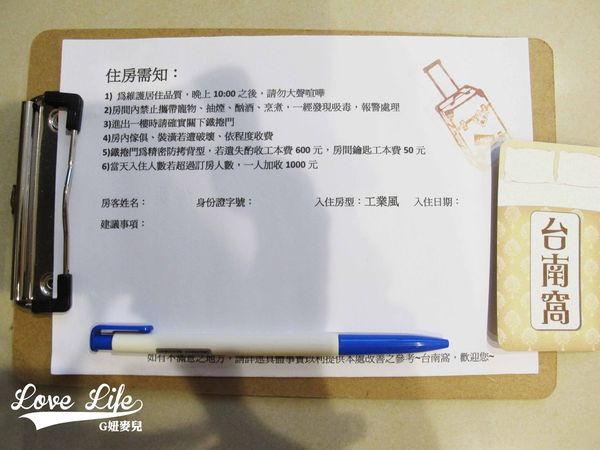 住房需知：
1) 為維護居住品質，晚上 10:00 之後，請勿大聲喧嘩
2)房間內禁止攜帶寵物、抽煙、酗酒、烹煮，一經發現吸毒，報警處理
3)進出一樓時請確實關下鐵捲門
4)房內傢俱、裝潢若遭破壞、依程度收費
5)鐵捲門為精密防拷背型，若遺失酌收工本費 600 元，房間鑰匙工本費 50 元
6)當天入住人數若超過訂房人數，一人加收 1000 元
房客姓名： 身份證字號： 入住房型：工業風 入住日期：
建議事項：
台南窩
如有不滿意之地方，請詳述具體事實以利提供本處改善之參考~台南窩，歡迎您~
Love Life
G妞麥兒